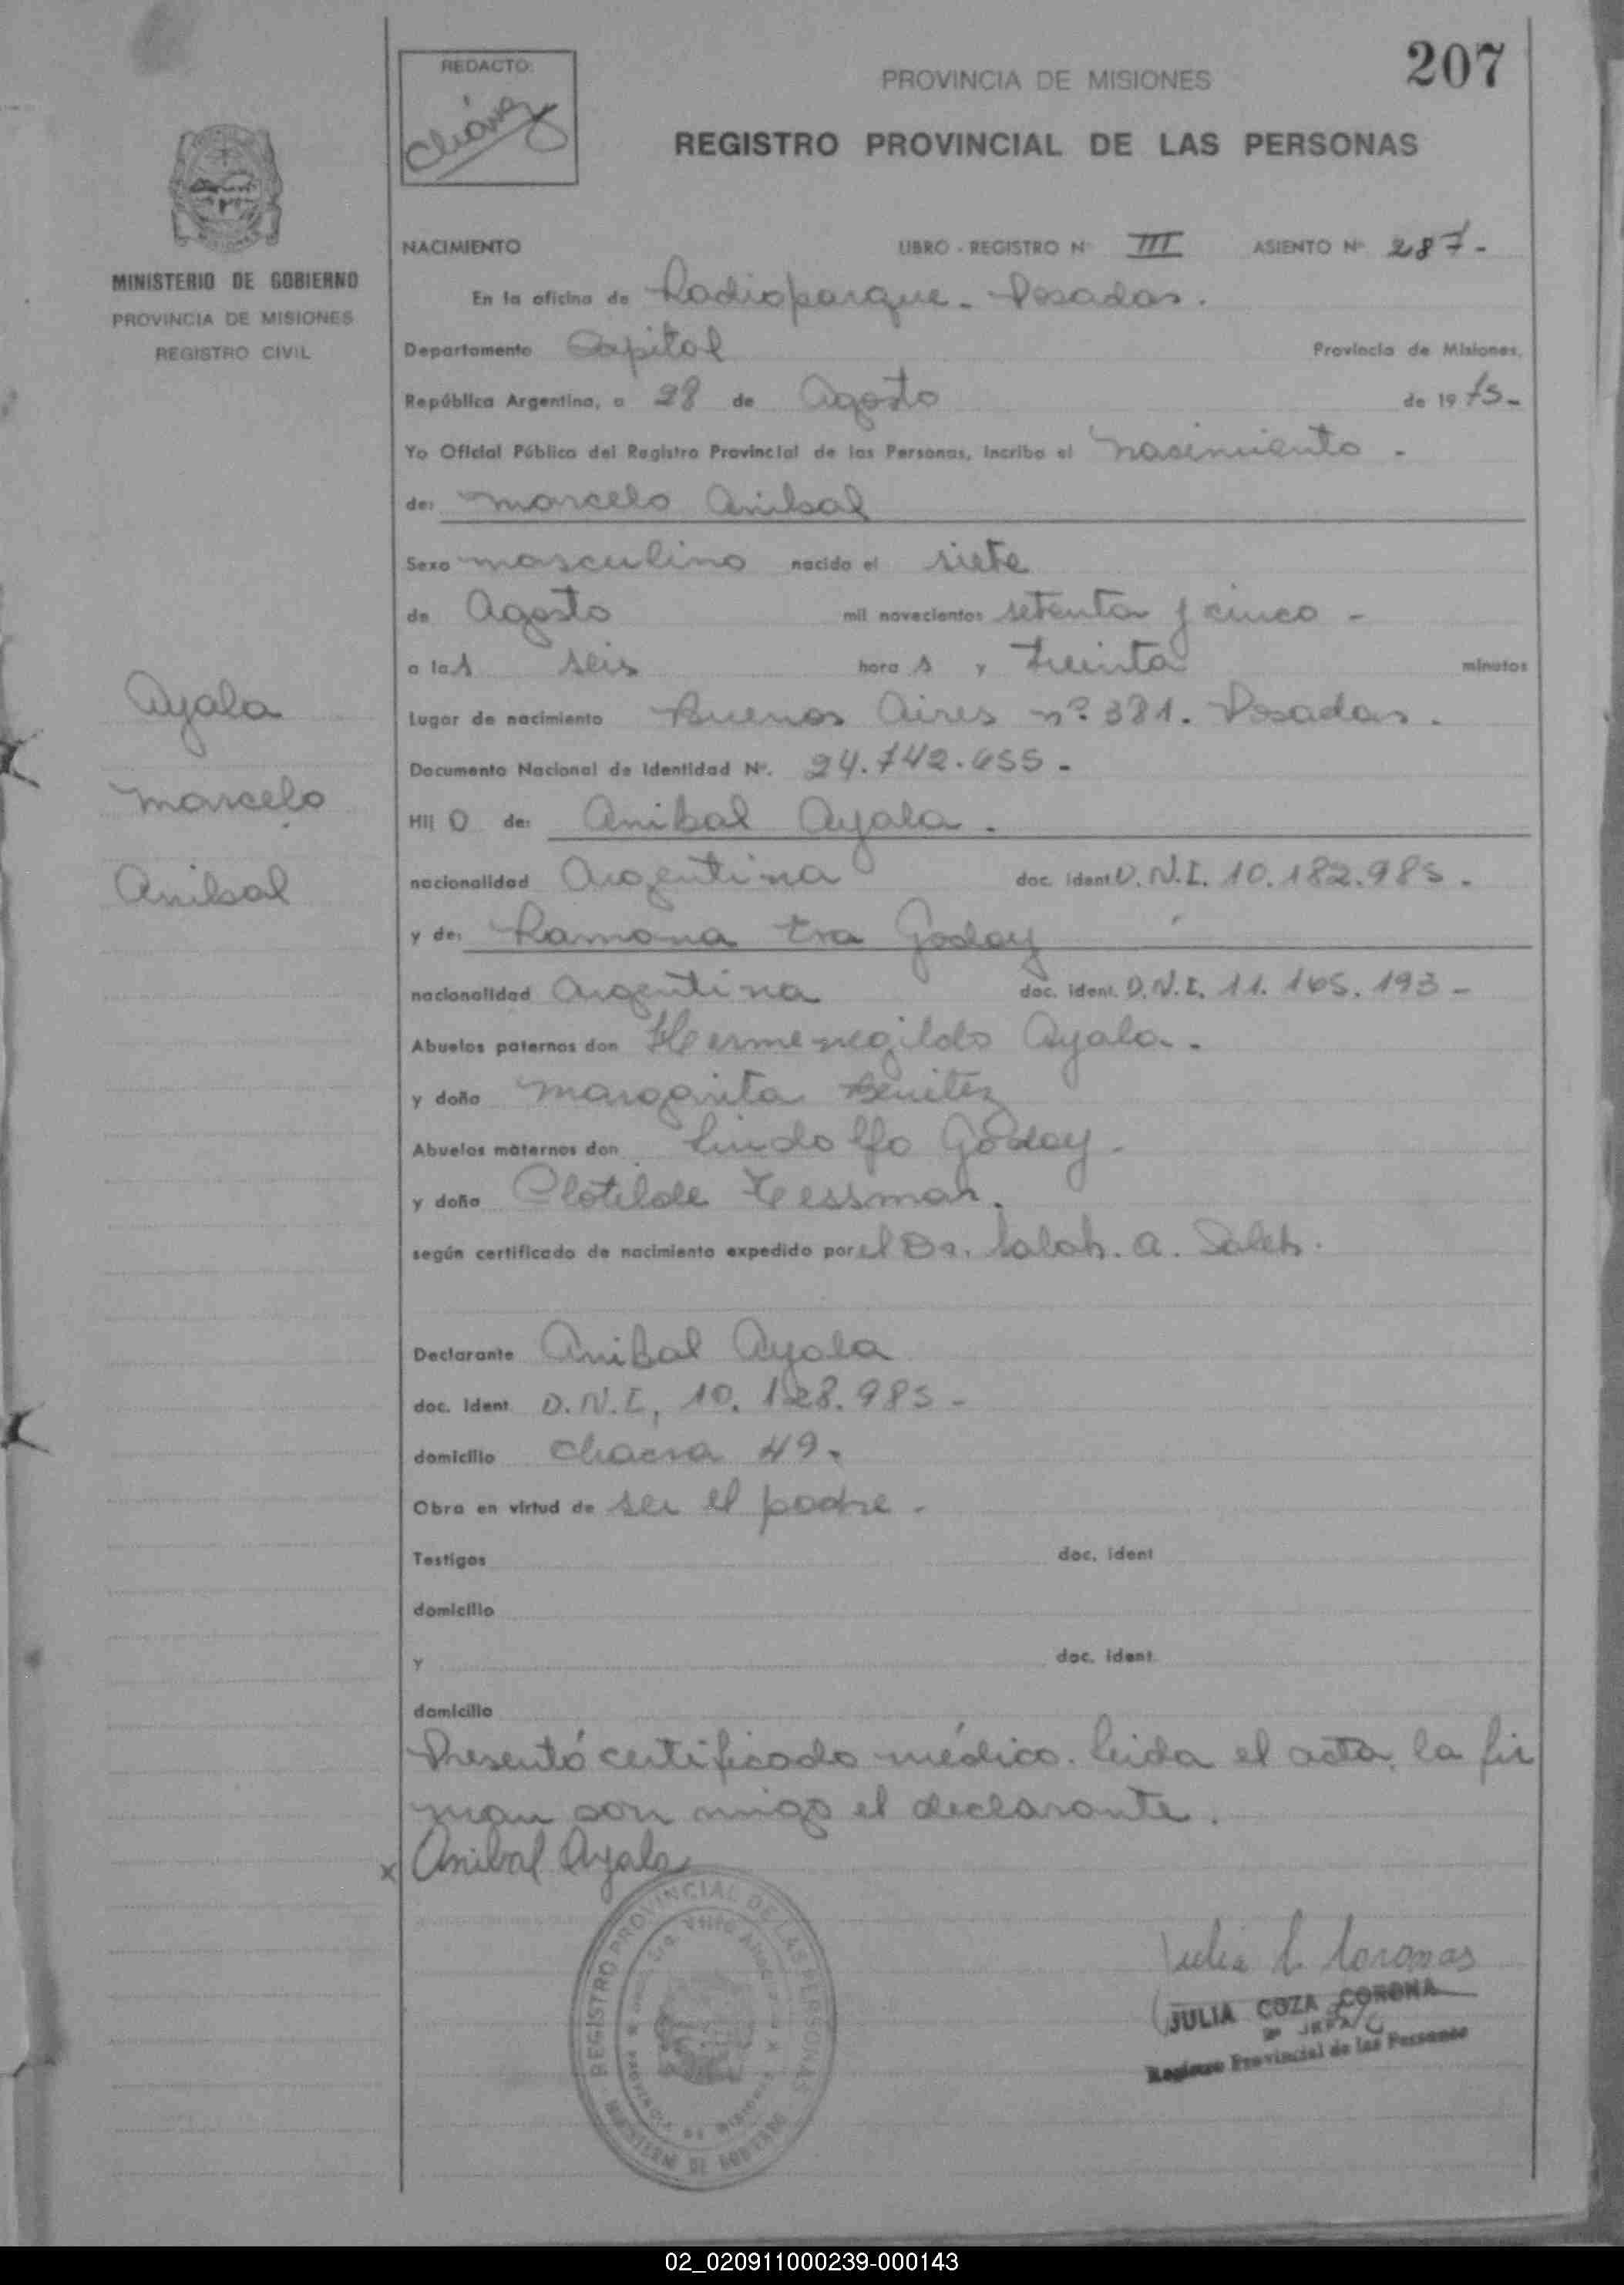 207
REDACTO:
Chávez
PROVINCIA DE MISIONES
REGISTRO PROVINCIAL DE LAS PERSONAS
MINISTERIO DE GOBIERNO
PROVINCIA DE MISIONES
REGISTRO CIVIL
NACIMIENTO LIBRO - REGISTRO Nº III ASIENTO Nº 287.-
En la oficina de Radioparque - Posadas.
Departamento Capital Provincia de Misiones,
República Argentina, a 28 de Agosto de 1975-
Yo Oficial Público del Registro Provincial de las Personas, inscribo el nacimiento -
de: Marcelo Anibal
Sexo masculino nacido el siete
de Agosto mil novecientos setenta y cinco -
a las seis horas y treinta minutos
Ayala
Marcelo
Anibal
Lugar de nacimiento Buenos Aires nº 381. Posadas.
Documento Nacional de Identidad Nº. 24.742.655-
Hijo de: Anibal Ayala.
nacionalidad Argentina doc. ident D.N.I. 10.182.985.
y de: Ramona Eva Godoy
nacionalidad Argentina doc. ident. D.N.I. 11.165.193-
Abuelos paternos don Hermenegildo Ayala.
y doña Margarita Benitez
Abuelos maternos don Lindolfo Godoy.
y doña Clotilde Tessman.
según certificado de nacimiento expedido por el Dr. Salah. A. Saleh.
Declarante Anibal Ayala
doc. Ident D.N.I, 10.128.985-
domicilio Chacra 49.
Obra en virtud de ser el padre.
Testigos doc. ident
domicilio
y doc. ident.
domicilio
Presentó certificado médico. Leida el acta, la fir
man con migo el declarante.
x Anibal Ayala
REGISTRO PROVINCIAL DE LAS PERSONAS
MINISTERIO DE GOBIERNO
PROVINCIA DE MISIONES
Julia C. Coronas
JULIA COZA CORONA
Registro Provincial de las Personas
02_020911000239-000143